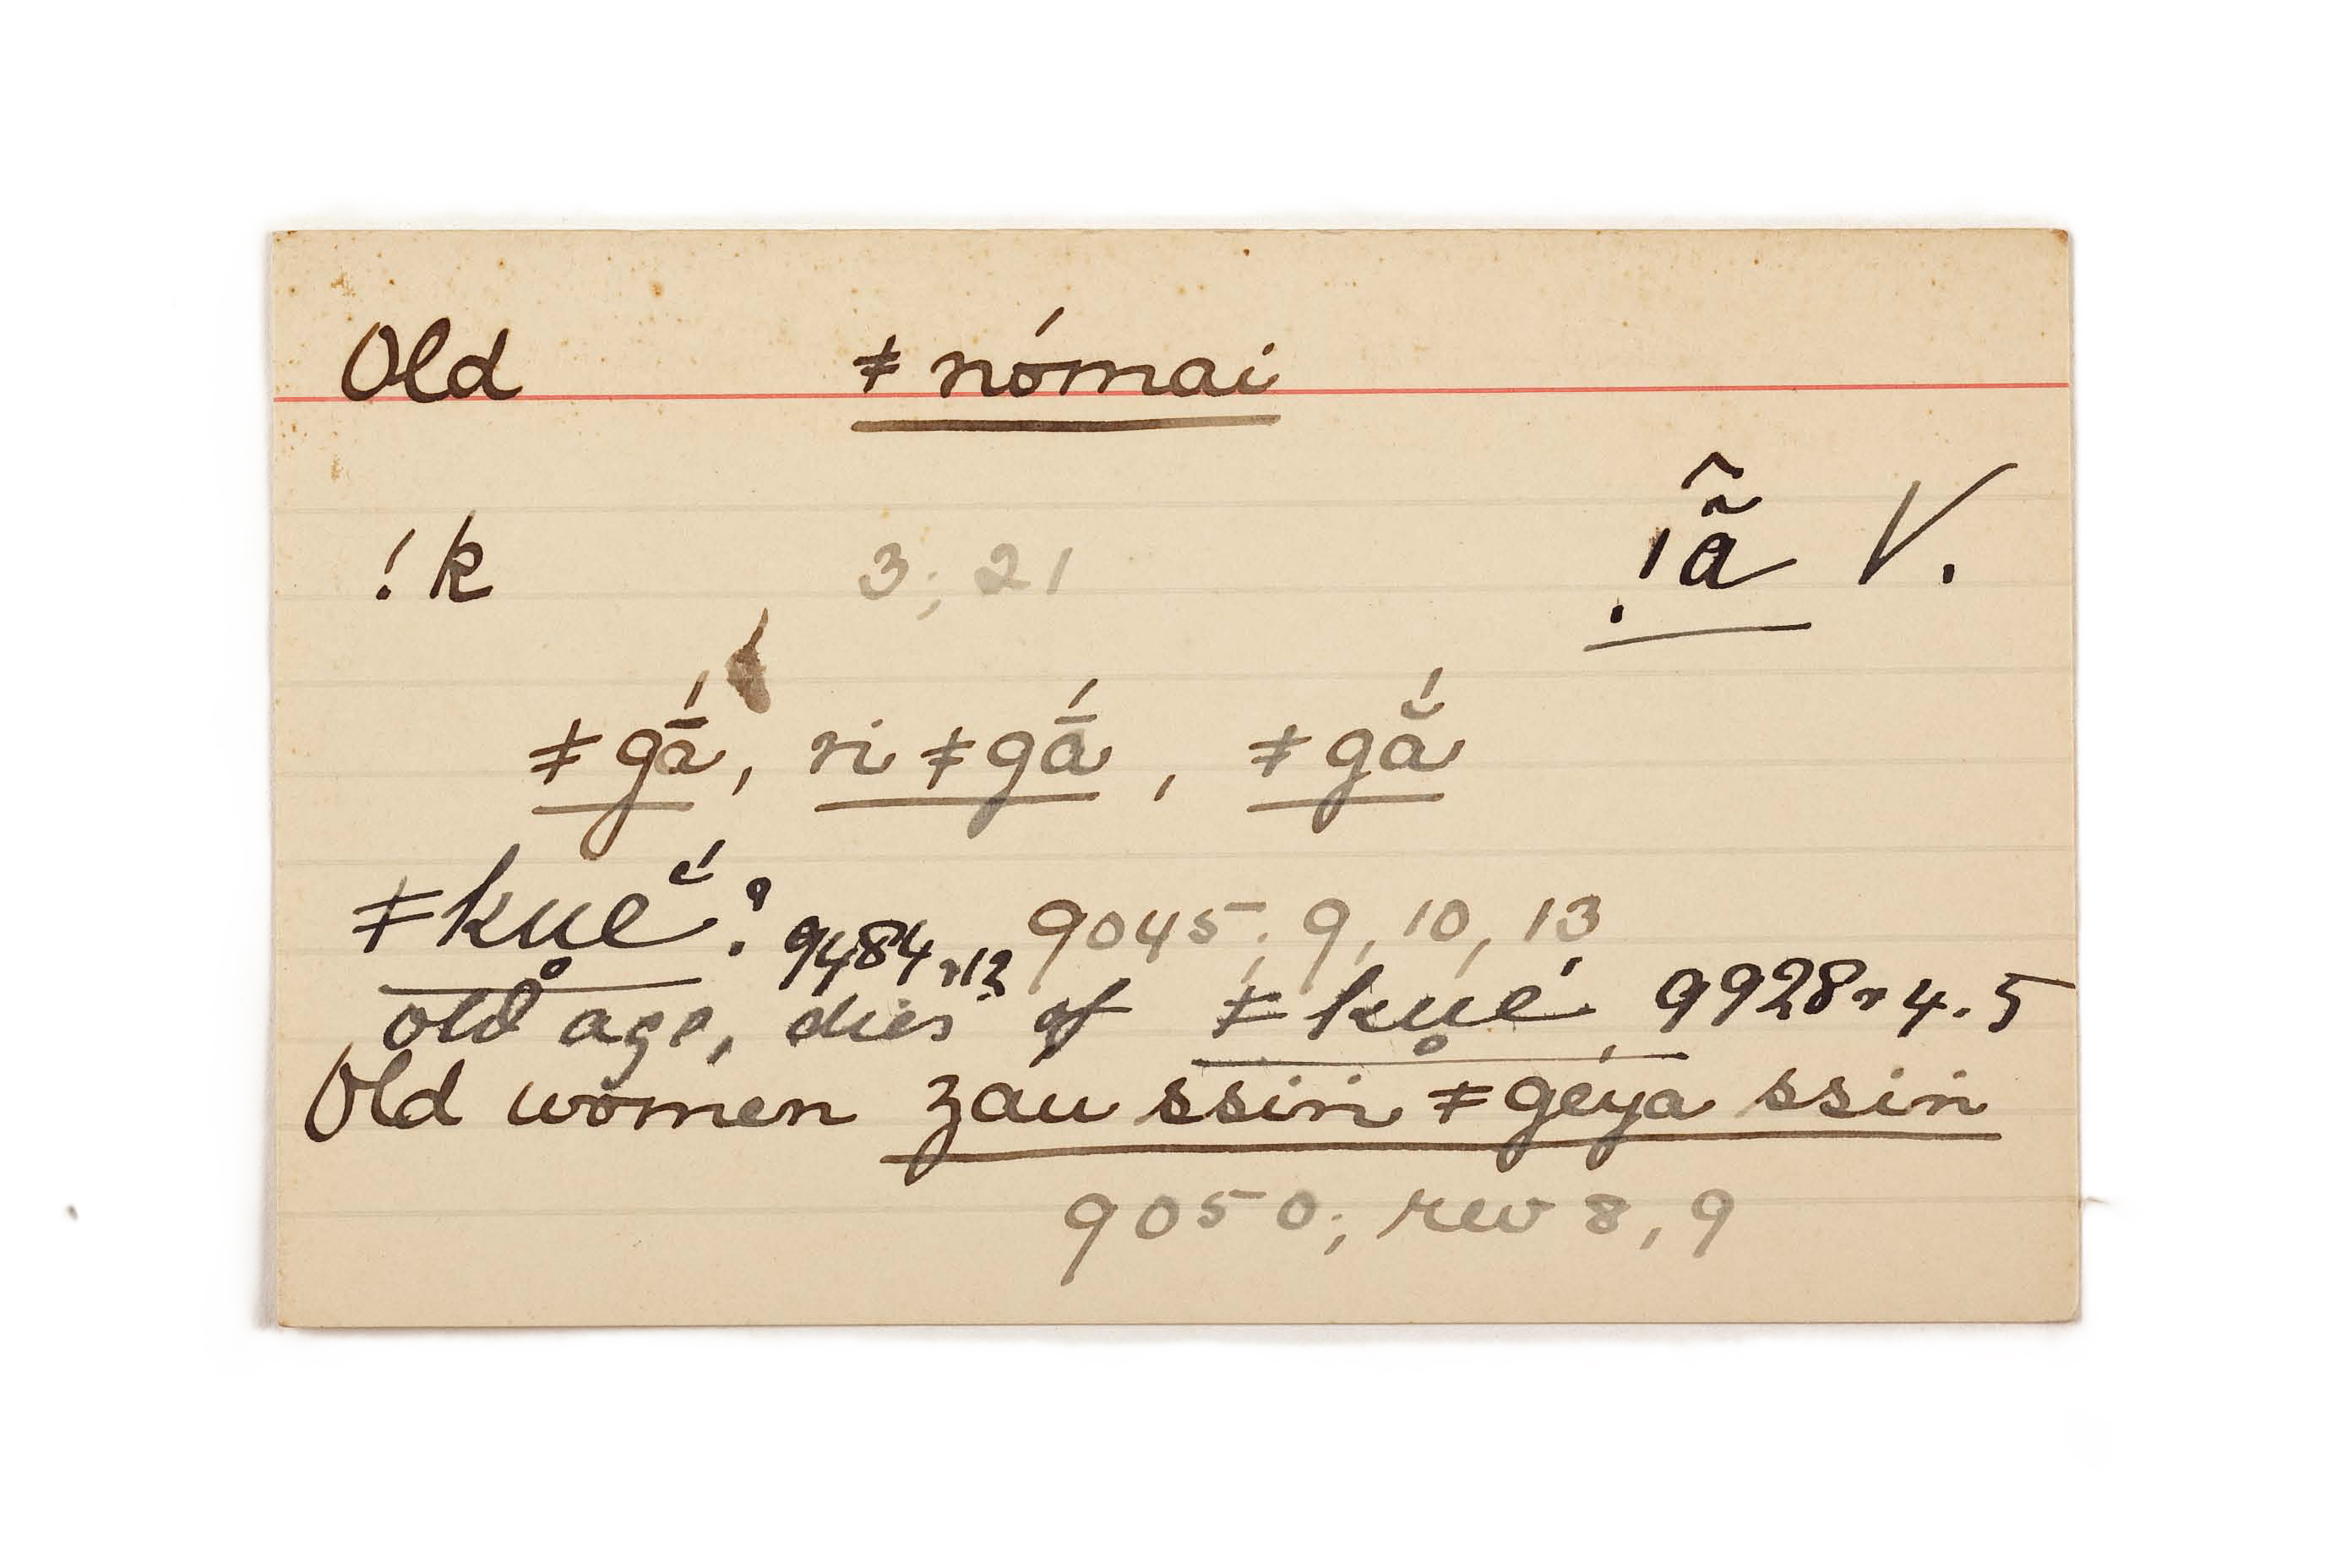 Old ǂnómai
!k 3; 21 ǀẫ V.
ǂgā́, ri ǂgā́, ǂgắ
ǂku̥é? 9484,r12 9045; 9, 10, 13
old age, dies of ǂku̥é, 9928r4.5
Old women zau ssin ǂgéya ssin
9050; rev 8, 9